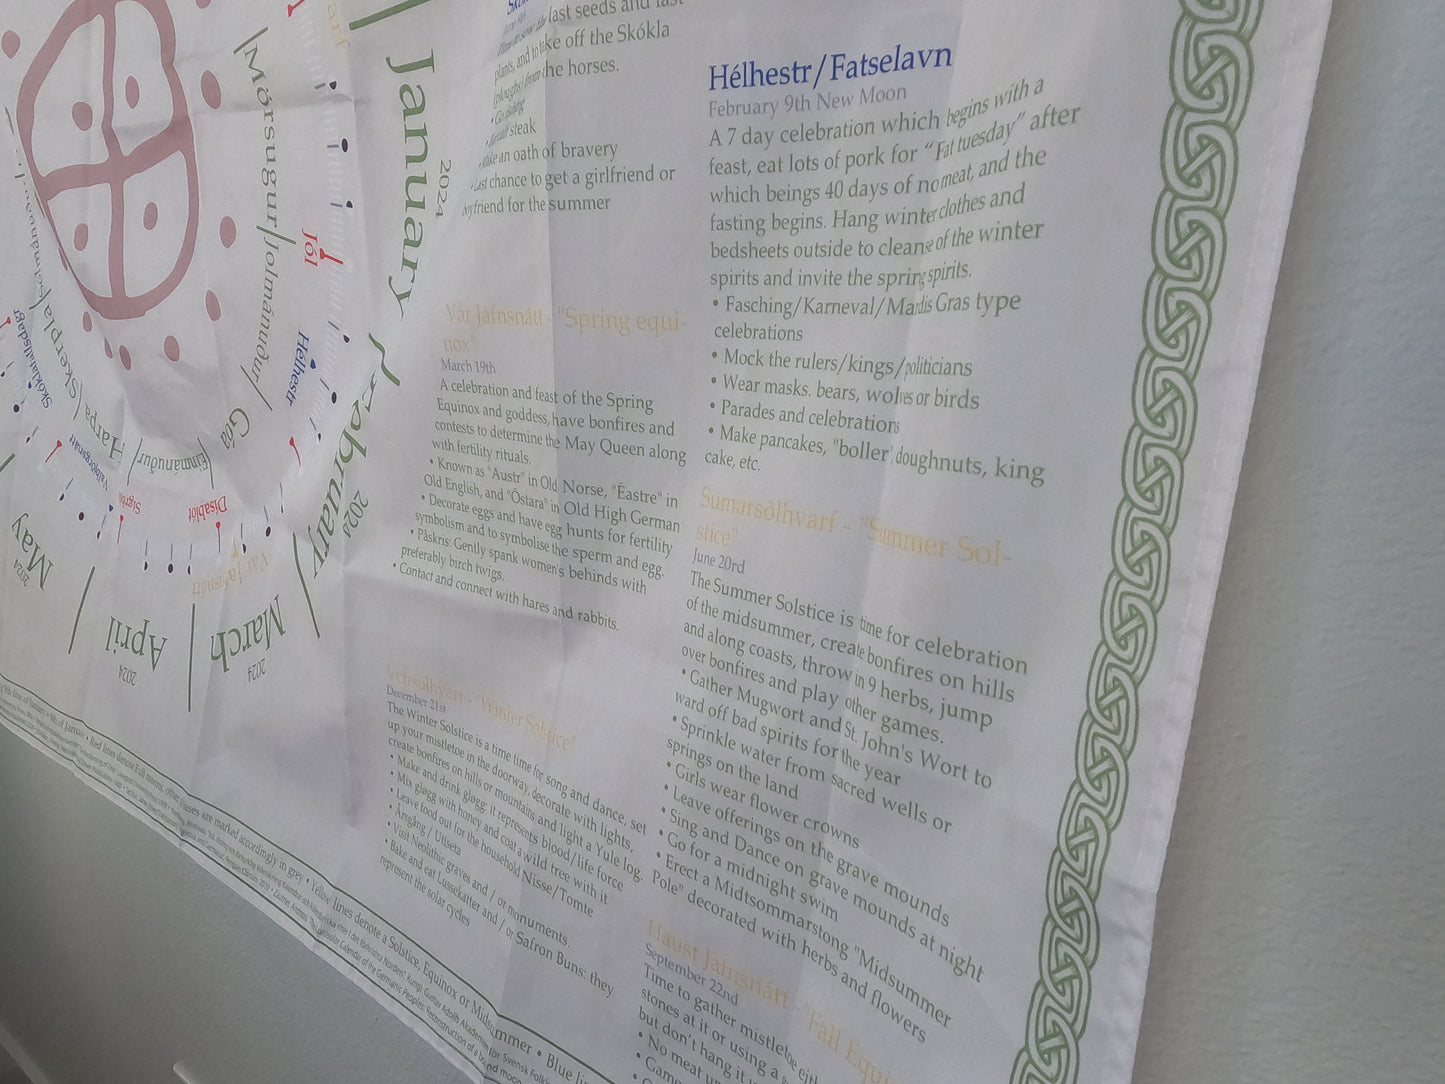 last seeds and last
plants, and to take off the Skókla
(ploughs) from the horses.
steak
Make an oath of bravery
Last chance to get a girlfriend or
boyfriend for the summer
Vár Jafnsnátt - "Spring equi-
nox"
March 19th
A celebration and feast of the Spring
Equinox and goddess, have bonfires and
contests to determine the May Queen along
with fertility rituals.
• Known as "Austr" in Old Norse, "Ēastre" in
Old English, and "Ôstara" in Old High German
• Decorate eggs and have egg hunts for fertility
symbolism and to symbolise the sperm and egg.
• Påskris: Gently spank women's behinds with
preferably birch twigs.
• Contact and connect with hares and rabbits.
Vetrsólhvarf - "Winter Solstice"
December 21st
The Winter Solstice is a time time for song and dance, set
up your mistletoe in the doorway, decorate with lights,
create bonfires on hills or mountains and light a Yule log.
• Make and drink gløgg: it represents blood/life force
• Mix gløgg with honey and coat a wild tree with it
• Leave food out for the household Nisse/Tomte
• Årsgång / Utiseta
• Visit Neolithic graves and / or monuments.
• Bake and eat Lussekatter and / or Safron Buns: they
represent the solar cycles
Hélhestr/Fatselavn
February 9th New Moon
A 7 day celebration which begins with a
feast, eat lots of pork for “Fat tuesday” after
which beings 40 days of no meat, and the
fasting begins. Hang winter clothes and
bedsheets outside to cleanse of the winter
spirits and invite the spring spirits.
• Fasching/Karneval/Mardis Gras type
celebrations
• Mock the rulers/kings/politicians
• Wear masks. bears, wolves or birds
• Parades and celebrations
• Make pancakes, "boller", doughnuts, king
cake, etc.
Sumarsólhvarf - "Summer Sol-
stice"
June 20rd
The Summer Solstice is time for celebration
of the midsummer, create bonfires on hills
and along coasts, throw in 9 herbs, jump
over bonfires and play other games.
• Gather Mugwort and St. John's Wort to
ward off bad spirits for the year
• Sprinkle water from sacred wells or
springs on the land
• Girls wear flower crowns
• Leave offerings on the grave mounds
• Sing and Dance on grave mounds at night
• Go for a midnight swim
• Erect a Midtsommarstong "Midsummer
Pole" decorated with herbs and flowers
Haust Jafnsnátt - "Fall Equi
September 22nd
Time to gather mistletoe
stones at it or using a
but don't hang it
• No meat
• Game
January
2024
February
2024
March
2024
April
2024
May
2024
Mörsugur
Jólmánuður
Góa
Einmánuður
Harpa
Skerpla
Jól
Hélhestr
Disablót
Vár Jafnsnátt
Valborgsnátt
Skóklafallsdagr
Red lines denote full moons, other phases are marked accordingly in grey • Yellow lines denote a Solstice, Equinox or Midsummer • Blue